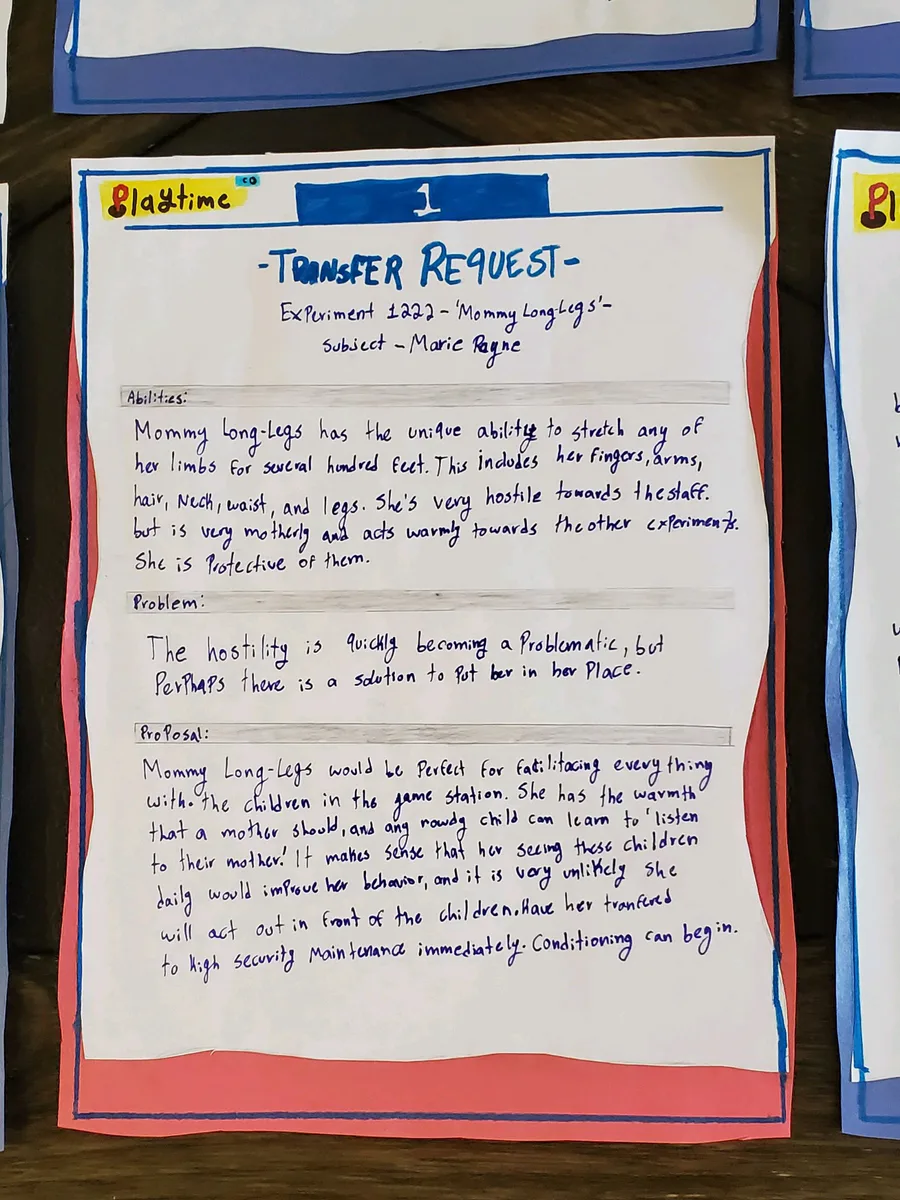 Playtime co
1
-TRANSFER REQUEST-
Experiment 1222 - 'Mommy Long-Legs' -
Subject - Marie Payne
Abilities:
Mommy Long-Legs has the unique ability to stretch any of
her limbs for several hundred feet. This includes her fingers, arms,
hair, Neck, waist, and legs. She's very hostile towards the staff.
but is very motherly and acts warmly towards the other experiments.
She is Protective of them.
Problem:
The hostility is quickly becoming a Problematic, but
Perhaps there is a solution to Put her in her Place.
Proposal:
Mommy Long-Legs would be Perfect for fatilitacing everything
with the children in the game station. She has the warmth
that a mother should, and any rowdy child can learn to 'listen
to their mother.' It makes sense that her seeing these children
daily would improve her behavior, and it is very unlikely she
will act out in front of the children. Have her tranfered
to High security Maintenance immediately. Conditioning can begin.
Pl